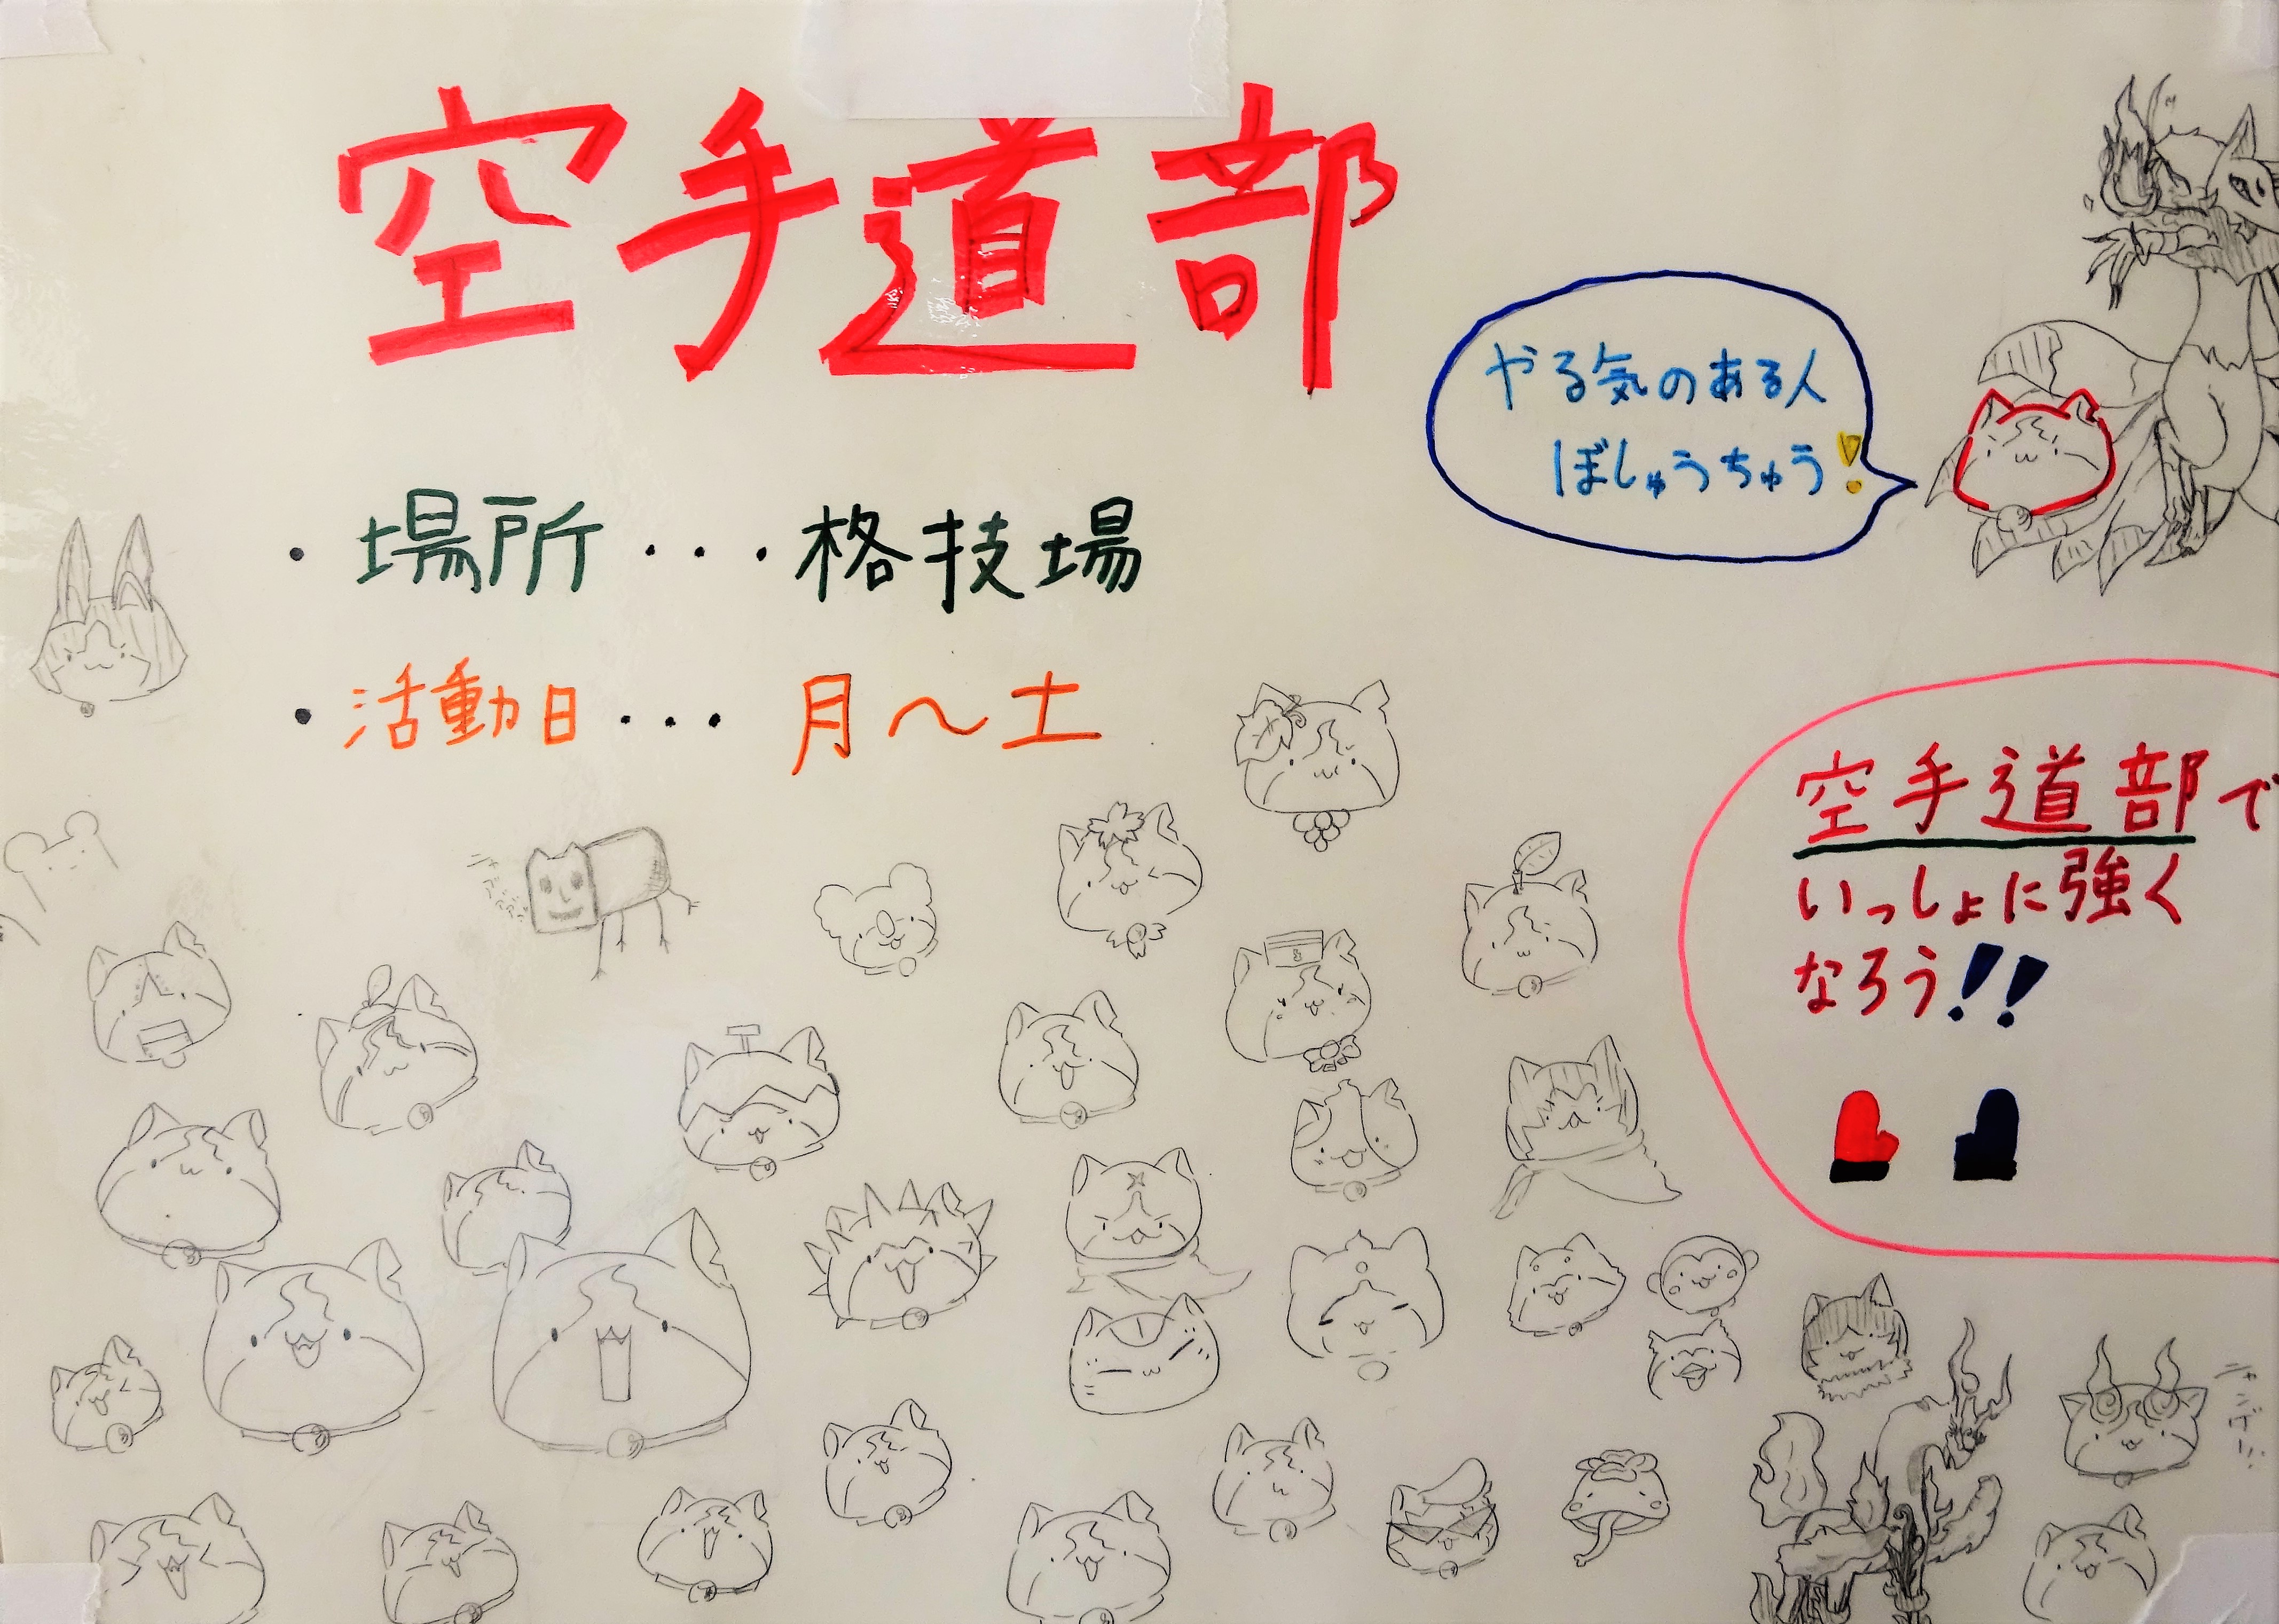 空手道部
やる気のある人
ぼしゅうちゅう!
・場所・・・格技場
・活動日・・・月～土
空手道部で
いっしょに強く
なろう!!